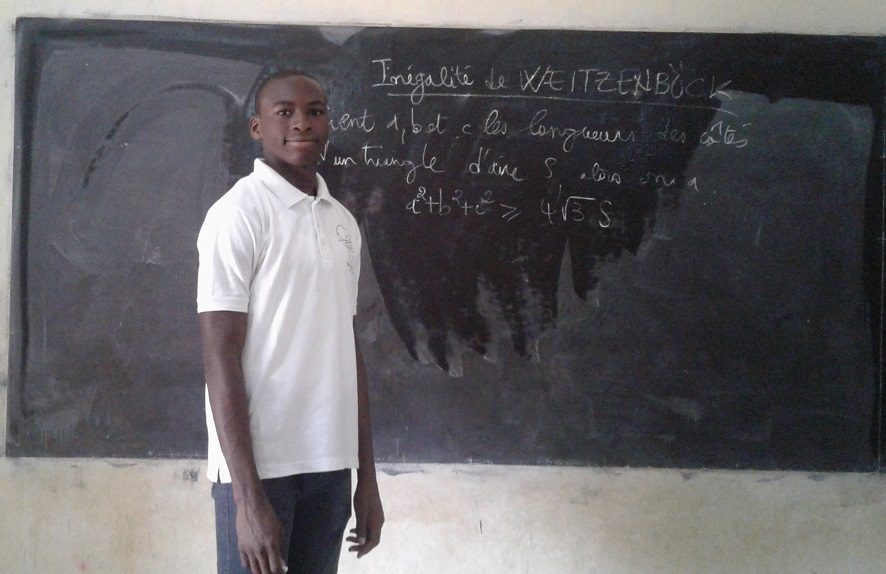 Inégalité de WEITZENBÖCK
ient a, b et c les longueurs des côtés
d'un triangle d'aire S alors on a
a²+b²+c² ≥ 4√3 S